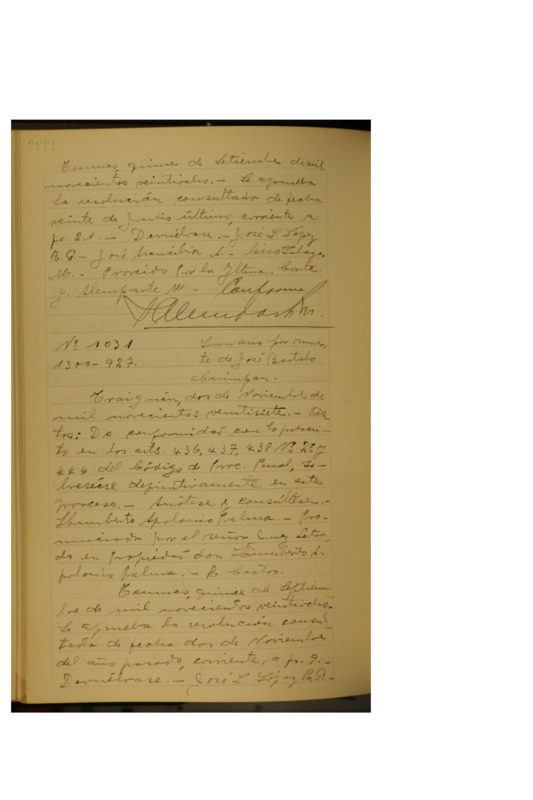 Temuco, quince de Setiembre de mil
novecientos veintiocho. — Se aprueba
la resolución consultada de fecha
veinte de Julio último, corriente a
fs. 21. — Devuélvase. — José L. López
B. G. — José Mansilla A. —
M. — Proveído por la Iltma. Corte.
J. Alemparte M. — Conforme
JAlemparteM.
Nº 1031
1300-927.
Sumario por muer
te de José Bartolo
Traiguén, dos de Noviembre de
mil novecientos veintisiete. — Vis
tos: De conformidad con lo prescri-
to en los arts. 436, 437, 438 Nº 2º y
444 del Código de Proc. Penal, so-
breseése definitivamente en este
proceso. — Anótese y consúltese. —
Humberto Apolonio Palma. — Pro-
nunciada por el señor Juez Letra-
do en propiedad don Humberto A-
polonio Palma. — R. Castro.
Temuco, quince de Septiem
bre de mil novecientos veintiocho.
Se aprueba la resolución consul-
tada de fecha dos de Noviembre
del año pasado, corriente a fs. 9. —
Devuélvase. — José L. López B. G. —